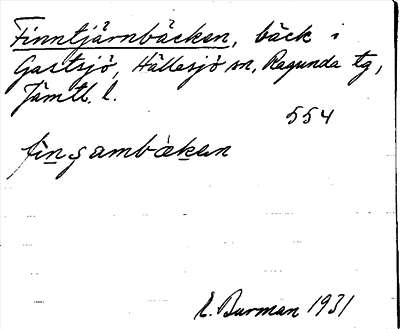 Finntjärnbäcken, bäck i
Gastsjö, Hällesjö sn, Ragunda tg,
Jämtl. l.
554
E. Burman 1931